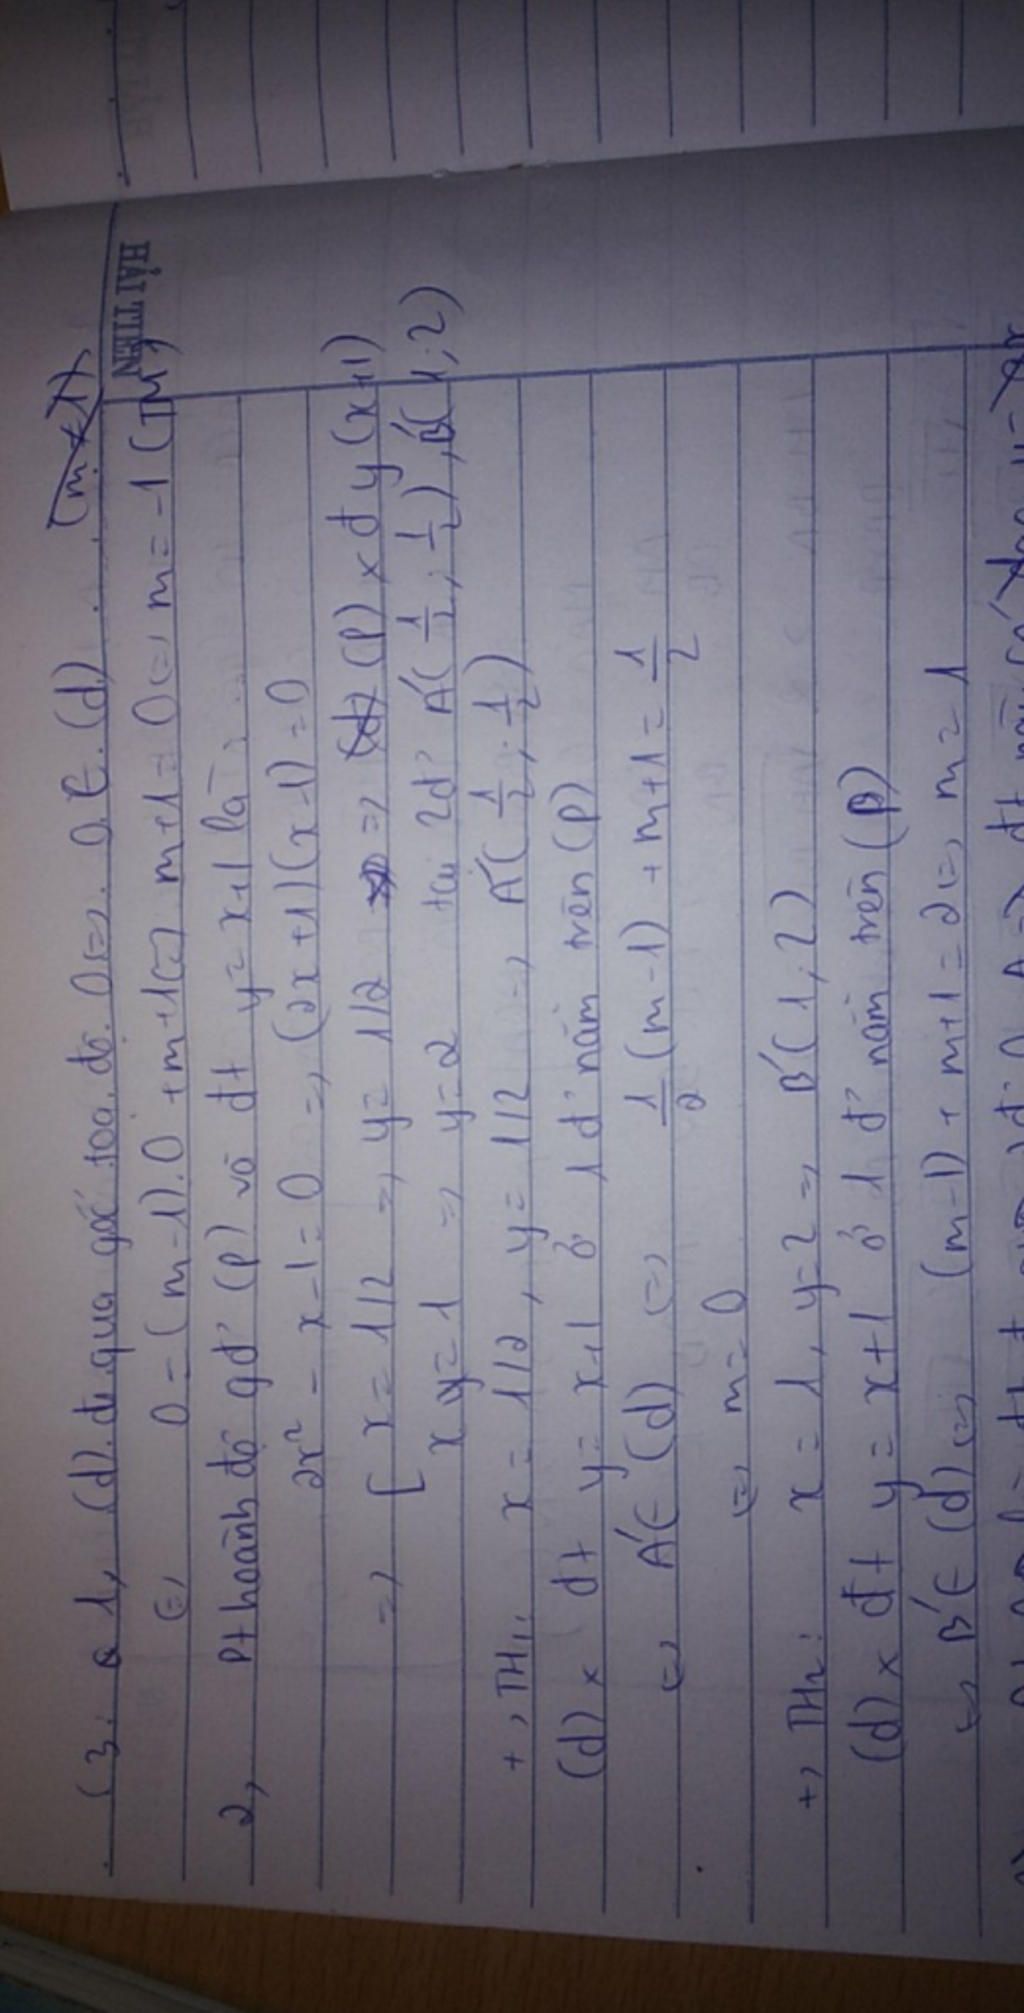 (m ≠ 1)
HẢI TIẾN
C3: a 1, (d) đi qua gốc toạ độ O <=> O ∈ (d)
<=> 0 = (m-1).0 + m+1 <=> m+1 = 0 <=> m = -1 (TM)
2, Pt hoành độ gđ' (P) và đt y = x+1 là
2x² - x - 1 = 0 => (2x+1)(x-1) = 0
=> [ x = 1/2 => y = 1/2 => (P) x đ y (x+1)
x = 1 => y = 2 tại 2đ' A'(1/2; 1/2), B'(1; 2)
+, TH1: x = 1/2, y = 1/2 => A'(1/2; 1/2)
(d) x đt y = x+1 ở 1 đ' nằm trên (P)
<=> A' ∈ (d) <=> 1/2 (m-1) + m+1 = 1/2
<=> m = 0
+, TH2: x = 1, y = 2 => B'(1; 2)
(d) x đt y = x+1 ở 1 đ' nằm trên (P)
<=> B' ∈ (d) <=> (m-1) + m+1 = 2 <=> m = 1